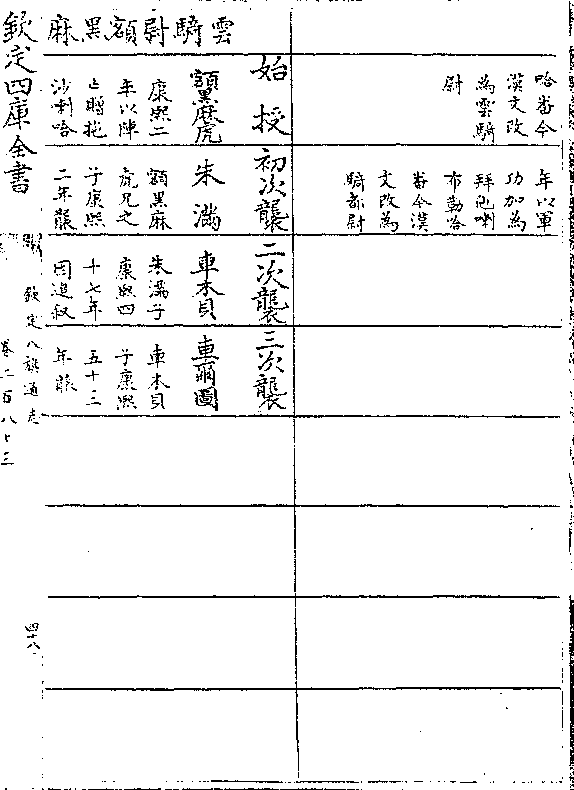 哈番今
漢文改
為雲騎
尉
年以軍
功加為
拜他喇
布勒哈
番今漢
文改為
騎都尉
雲騎尉額黑麻
始授
額黑麻虎
康熙二
年以陣
亡贈拖
沙喇哈
初次襲
朱滿
額黑麻
虎兄之
子康熙
二年襲
二次襲
車本貝
朱滿子
康熙四
十七年
因追叙
三次襲
車爾圖
車本貝
子康熙
五十三
年襲
欽定四庫全書
欽定八旗通志
卷二百八十三
四十八